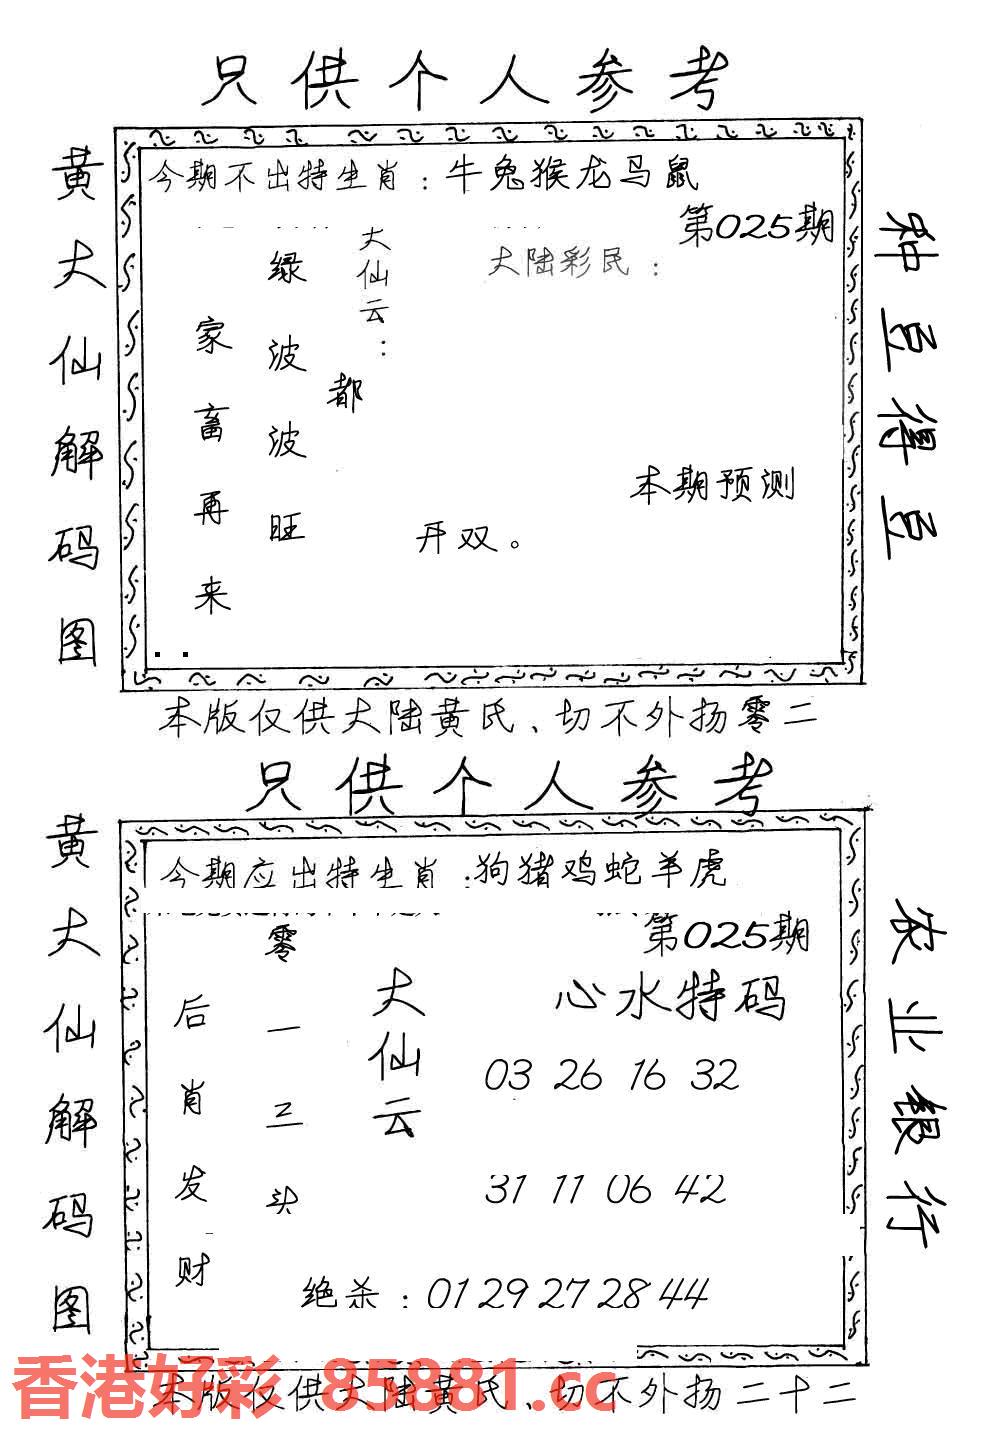 只供个人参考
黄大仙解码图
今期不出特生肖：牛兔猴龙马鼠
第025期
大仙云：
大陆彩民：
绿波波旺
家畜再来
都
本期预测
开双。
种豆得豆
本版仅供大陆黄氏、切不外扬零二
只供个人参考
黄大仙解码图
今期应出特生肖：狗猪鸡蛇羊虎
第025期
零一三头
后肖发财
大仙云
心水特码
03 26 16 32
31 11 06 42
绝杀：01 29 27 28 44
农业银行
香港好彩 85881.cc
本版仅供大陆黄氏、切不外扬二十二